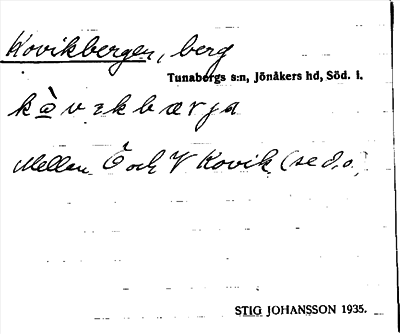 Kovikbergen, berg
Tunabergs s:n, Jönåkers hd, Söd. l.
kὰvɪkbærja
Mellan Ö och V Kovik (se d.o.)
STIG JOHANSSON 1935.